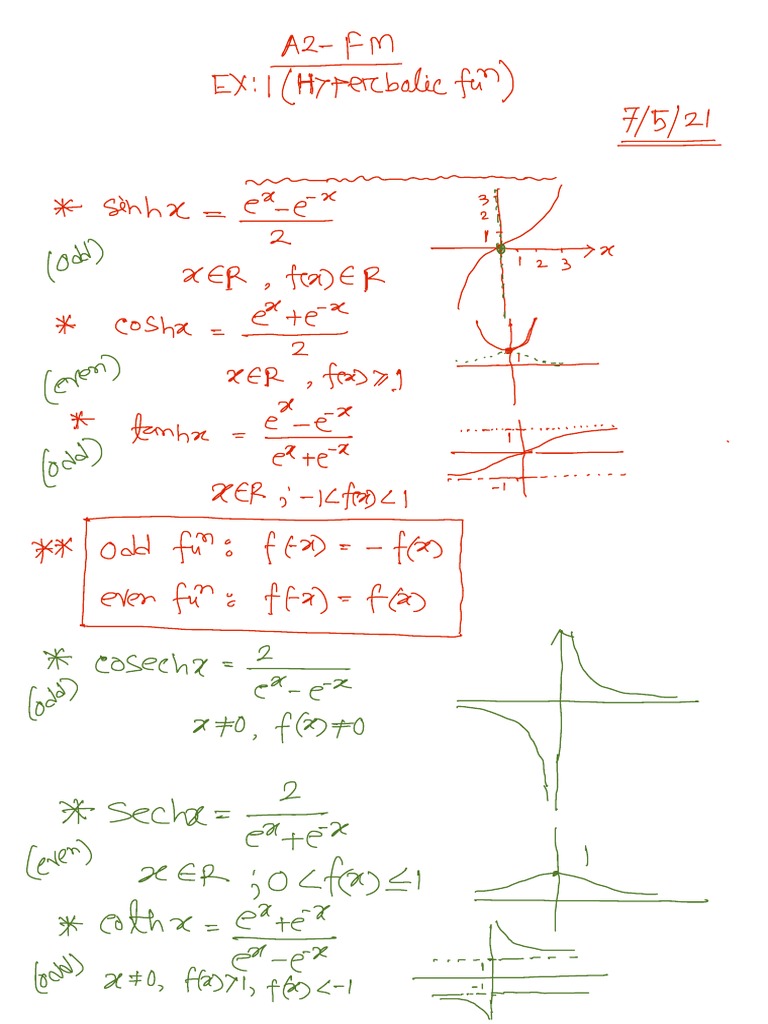 A2-FM
EX:1 (Hyperbolic fuⁿ)
7/5/21
* sinhx = (eˣ-e⁻ˣ)/2
(odd)
x∈R, f(x)∈R
3
2
1
1 2 3 x
* coshx = (eˣ+e⁻ˣ)/2
(even)
x∈R, f(x)≥1
1
* tanhx = (eˣ-e⁻ˣ)/(eˣ+e⁻ˣ)
(odd)
x∈R; -1<f(x)<1
1
-1
** odd fuⁿ: f(-x) = -f(x)
even fuⁿ: f(-x) = f(x)
* cosechx = 2/(eˣ-e⁻ˣ)
(odd)
x≠0, f(x)≠0
* Sechx = 2/(eˣ+e⁻ˣ)
(even)
x∈R; 0<f(x)≤1
1
* cothx = (eˣ+e⁻ˣ)/(eˣ-e⁻ˣ)
(odd)
x≠0, f(x)>1, f(x)<-1
1
-1